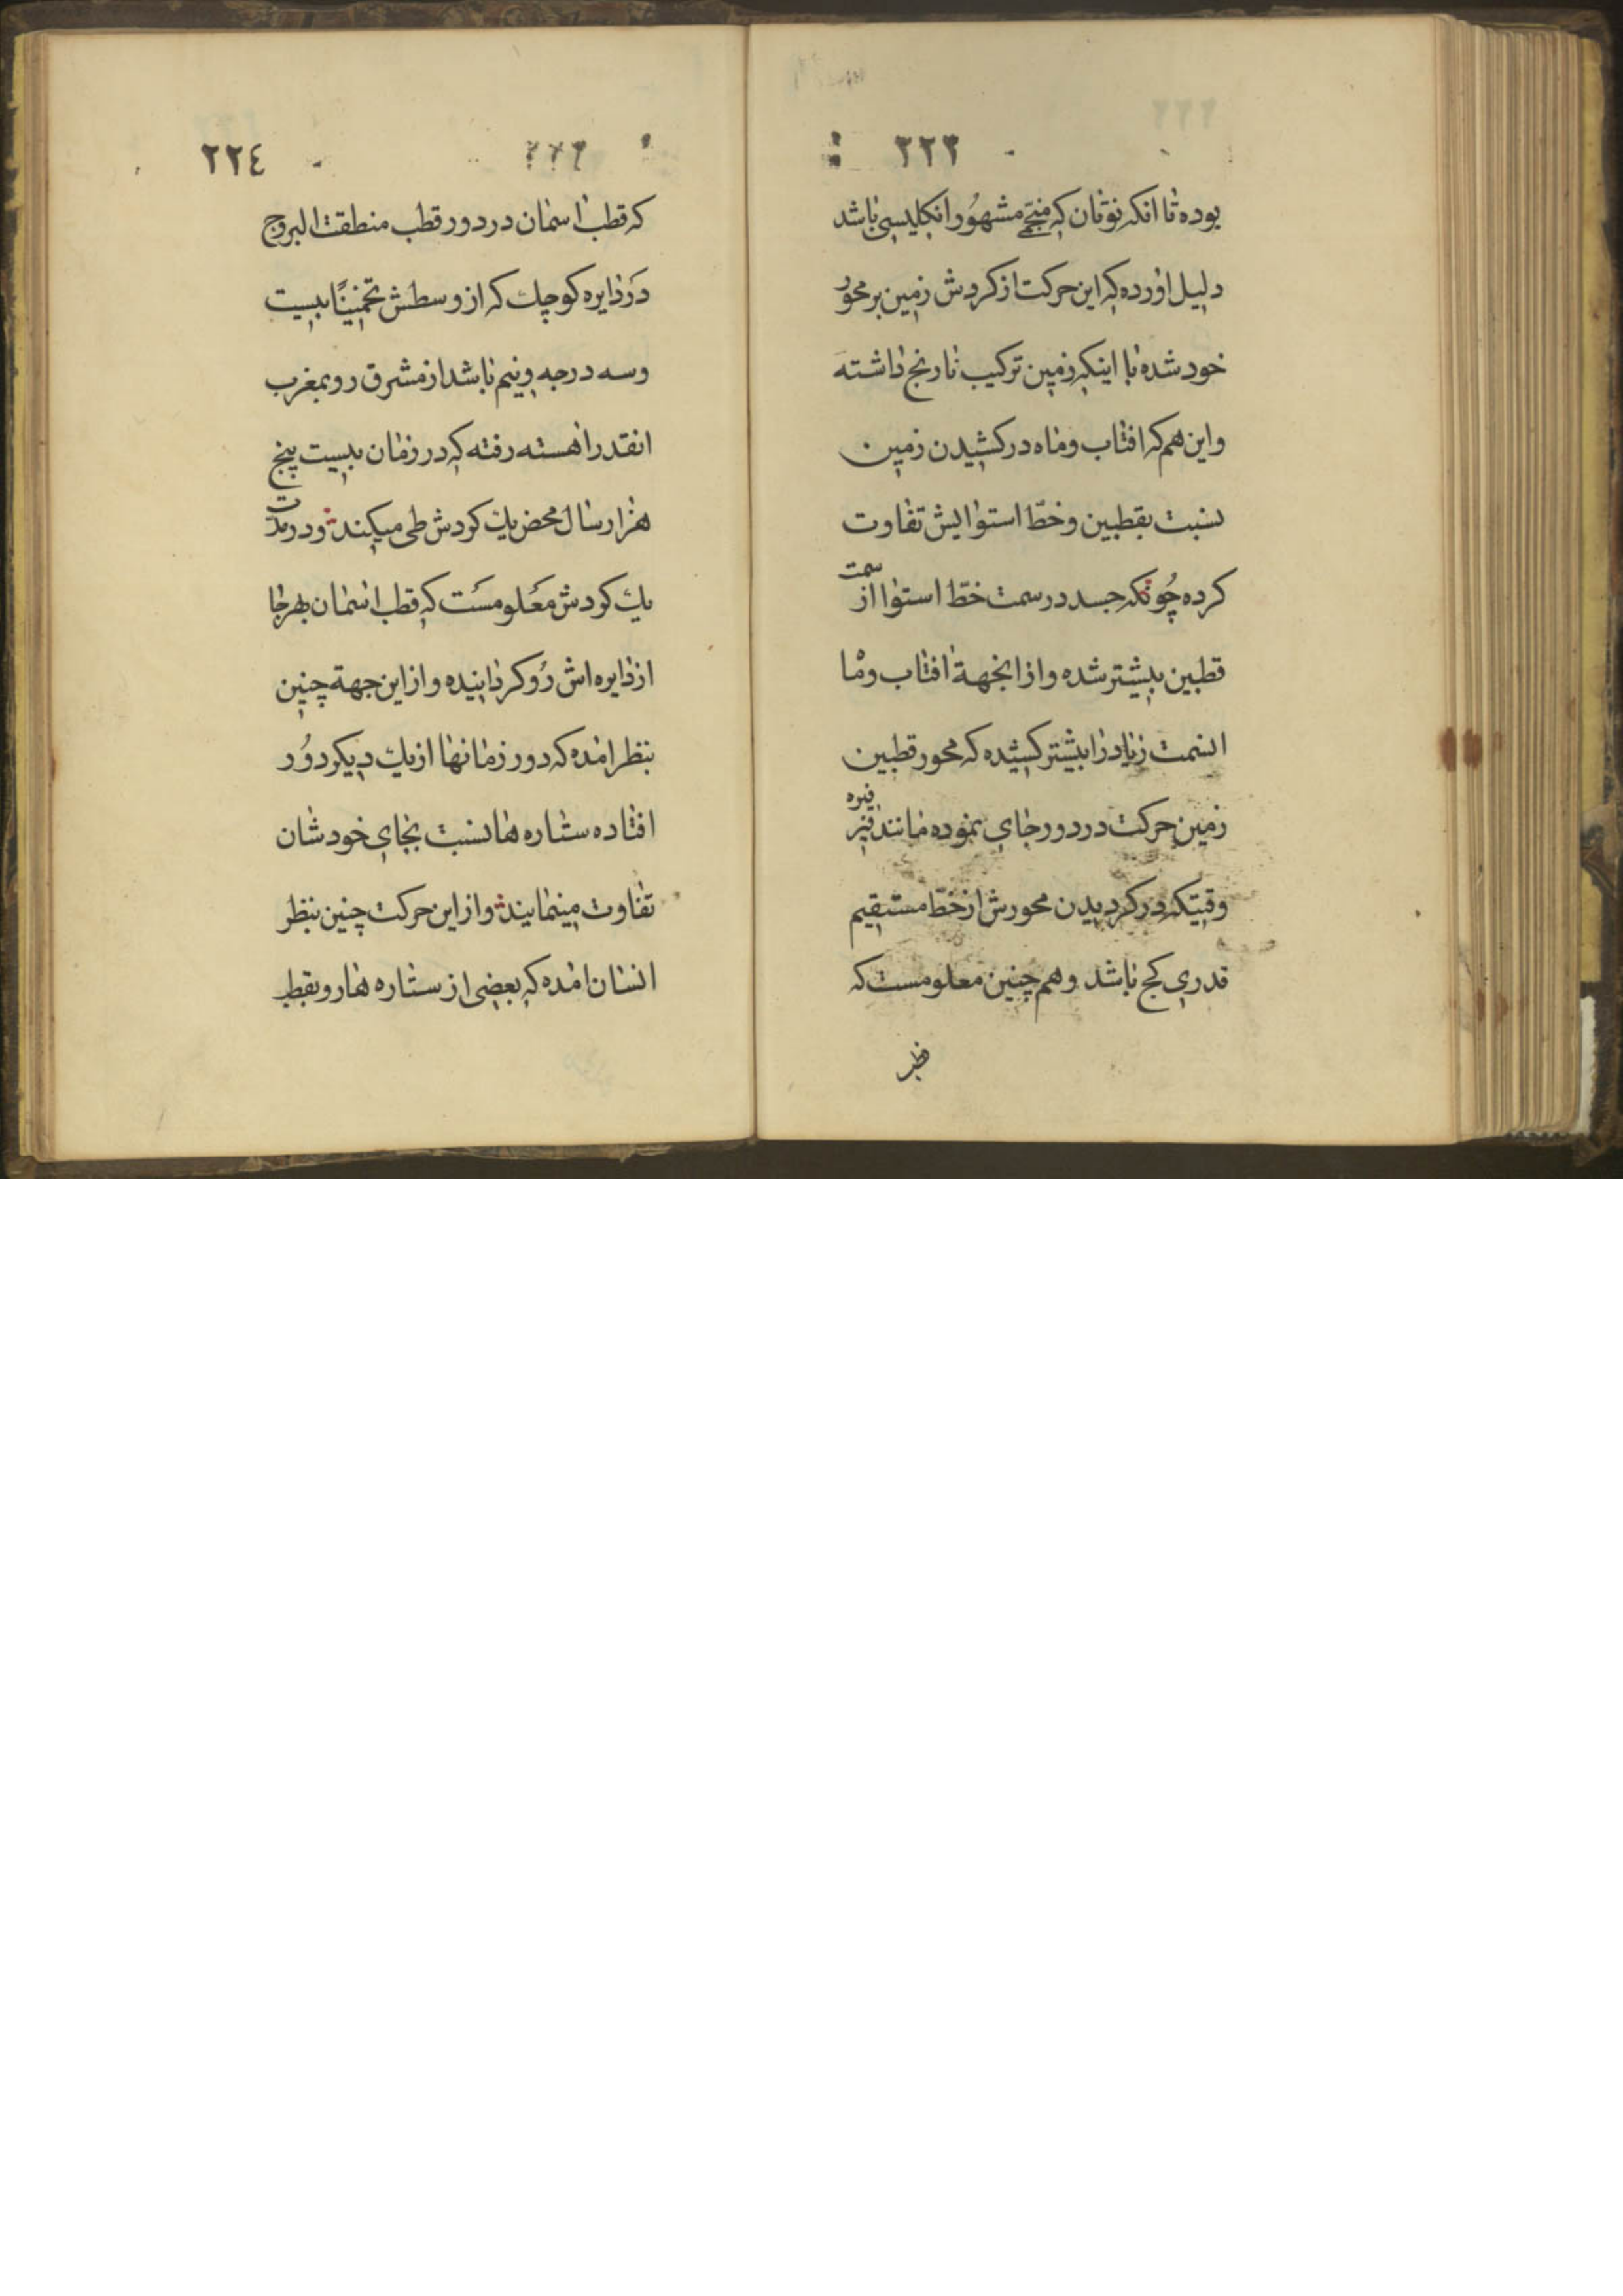 ٢٢٣
بوده تا انکه نوتان که منجّم مشهُور انکلیسی باشد
دلیل اورده که این حرکت از کردش زمین بر محور
خود شده با اینکه زمین ترکیب نارنج داشته
و این هم که افتاب و ماه در کشیدن زمین
نسبت بقطبین و خطّ استوایش تفاوت
کرده چُونکه جسد در سمت خطّ استوا از سمت
قطبین بیشتر شده و از انجهة افتاب و ما
انسمت زیاد را بیشتر کشیده که محور قطبین
زمین حرکت در دور جای نموده مانند فرفره
وقتیکه در کردیدن محورش از خطّ مستقیم
قدری کج باشد و هم چنین معلومست که
٢٢٤
که قطب اسمان در دور قطب منطقت البروج
در دایره کوچك که از وسطش تخمینًا بیست
و سه درجه و نیم باشد از مشرق رو بمغرب
انقدر اهسته رفته که در زمان بیست پنج
هزار سال محض یك کردش طی میکند و در مدّت
یك کردش معلومست که قطب اسمان بهر جا
از دایره اش رُو کردانیده و از این جهة چنین
بنظر امده که در زمانها از یك دیکر دوُر
افتاده ستاره ها نسبت بجای خودشان
تفاوت مینمایند و از این حرکت چنین بنظر
انسان امده که بعضی از ستاره ها رو بقطب